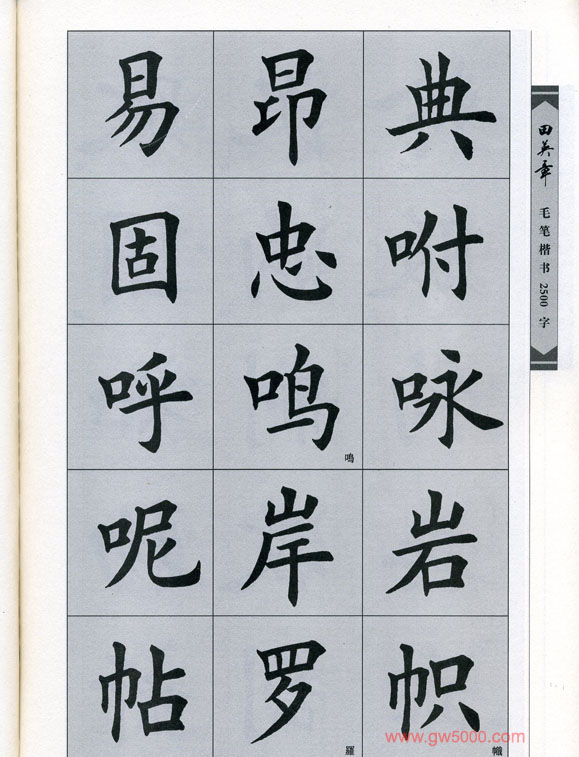 易 昂 典
固 忠 咐
呼 鸣 咏
鳴
呢 岸 岩
帖 罗 帜
羅 幟
田英章
毛笔楷书2500字
www.gw5000.com